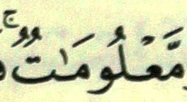 مَّعْلُومَٰتٌ ۚ